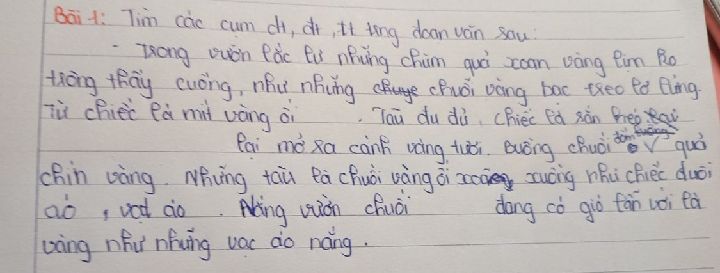 Bài 1: Tìm các cụm dt, đt, tt trong đoan văn sau:
- Trong vườn lắc lư những chùm quả xoan vàng lim ko
trông thấy cuống, như những chuỗi vàng bọc treo lơ lửng.
Từ chiếc lá mít vàng ối. Tàu đu đủ, chiếc lá sắn héo
lại mở ra cánh vàng tươi. Buồng chuối đốm quả
chín vàng. Những tàu lá chuối vàng ối xuống như chiếc đuôi
áo, vạt áo. Nắng vườn chuối đang có gió lẫn với lá
vàng như những vạc áo nắng.